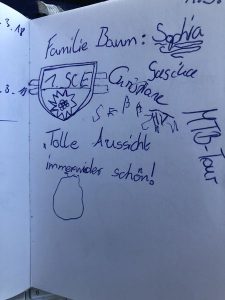 3.18
Familie Baum: Sophia
Sascha
Christiane
1. SCE
MTB-Tour
Tolle Aussicht
immerwider schön!